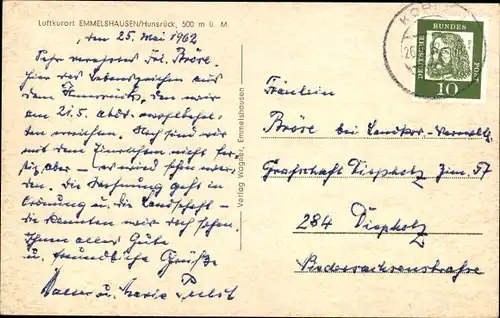 Luftkurort EMMELSHAUSEN/Hunsrück, 500 m ü. M.
den 25. Mai 1962
Sehr verehrtes Frl. Bröre.
Hier das Lebenszeichen aus
dem Hunsrück, den wir
am 21.5. abds. wohlbehal-
ten erreichten. Noch sind wir
mit dem Einrichten nicht fer-
tig, aber – es wird schon wer-
den. Die Wohnung geht in
Ordnung u. die Landschaft –
die kannten wir doch schon.
Ihnen alles Gute
u. freundliche Grüße
u. Marie
Verlag Wagner, Emmelshausen
DEUTSCHE BUNDESPOST
10
Fräulein
Bröre bei Landkr.-Verwaltg.
Grafschaft Diepholz Zim. 57
284 Diepholz
Niedersachsenstraße